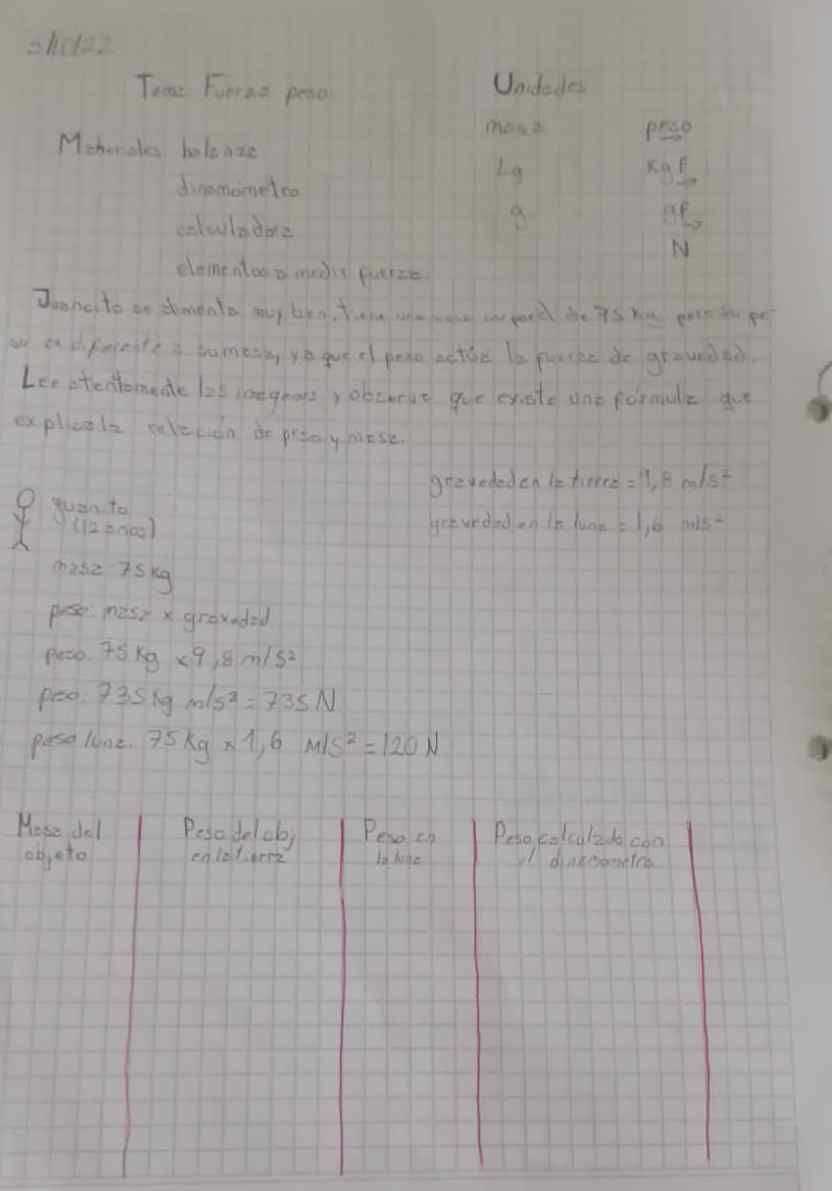 Tema Fuerza peso
Unidades
masa peso
Materiales balanza
kg kgf
dinamómetro
g gf
calculadora
N
elementos a medir fuerza
Juancito se alimenta muy bien, tiene una masa corporal de 75 kg pero su pe-
so es diferente a su masa, ya que el peso actúa la fuerza de gravedad.
Lee atentamente las imagenes y observe que existe una fórmula que
explica la relación de peso y masa.
gravedad en la tierra = 9,8 m/s²
gravedad en la luna = 1,6 m/s²
Juanito
(12 años)
masa 75 kg
peso: masa x gravedad
peso. 75 kg x 9,8 m/s²
peso: 735 kg m/s² = 735 N
peso luna. 75 kg x 1,6 m/s² = 120 N
Masa del objeto
Peso del obj en la tierra
Peso en la luna
Peso calculado con el dinamómetro